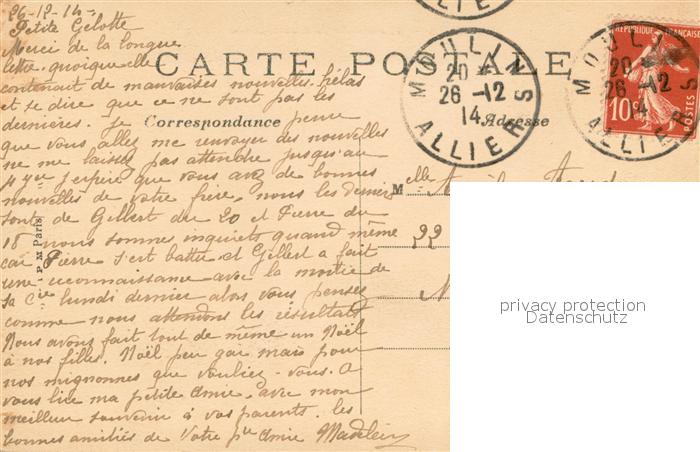 26-12-14.
Petite Gelotte
Merci de la longue
lettre quoique elle
contenait de mauvaises nouvelles. hélas
et se dire que ce ne sont pas les
dernières. Je pense
que vous allez me renvoyer des nouvelles
ne me laissez pas attendre jusqu'au
j'espère que vous avez de bonnes
nouvelles de votre frère, nous les derniers
sont de Gilbert du 20 et Pierre du
18 nous sommes inquiets quand même
car Pierre s'est battu et Gilbert a fait
une reconnaissance avec la moitié de
sa Cie lundi dernier alors vous pensez
comme nous attendons les résultats
Nous avons fait tout de même un Noël
à nos filles. Noël peu gai mais pour
nos mignonnes que vouliez-vous. A
vous lire ma petite Amie, avec mon
meilleur souvenir à vos parents. les
bonnes amitiés de Votre pte Amie Madeleine
CARTE POSTALE
Correspondance
Adresse
P M Paris
Melle
22
MOULINS
20
26 -12
14
ALLIER
REPUBLIQUE FRANÇAISE
10c
POSTES
MOULINS
20
26 -12
14
ALLIER
privacy protection
Datenschutz